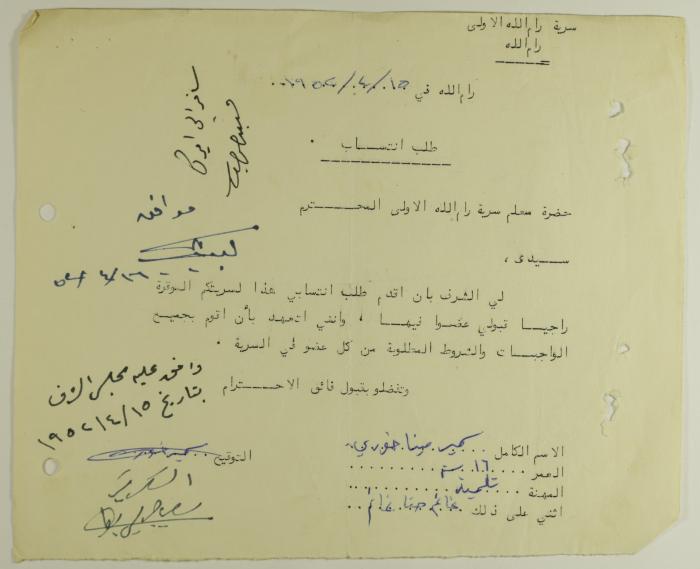 سرية رام الله الاولى
رام الله
رام الله في ١٥/٤/١٩٥٢
طلب انتساب
حضرة معلم سرية رام الله الاولى المحترم
سيدى ،
لي الشرف بان اقدم طلب انتسابي هذا لسريتكم الموقرة
راجيا قبولي عضوا فيها ، وانني اتعهد بأن اقوم بجميع
الواجبات والشروط المطلوبة من كل عضو في السرية .
وتفضلو بقبول فائق الاحترام
الاسم الكامل سمير حنا خوري
العمر ١٦ سنة
المهنة تلميذ
اثني على ذلك غانم حنا غانم
التوقيع
سافر الى
موافق
وافق عليه مجلس الشرف
بتاريخ ١٥/٤/١٩٥٢
السكرتير